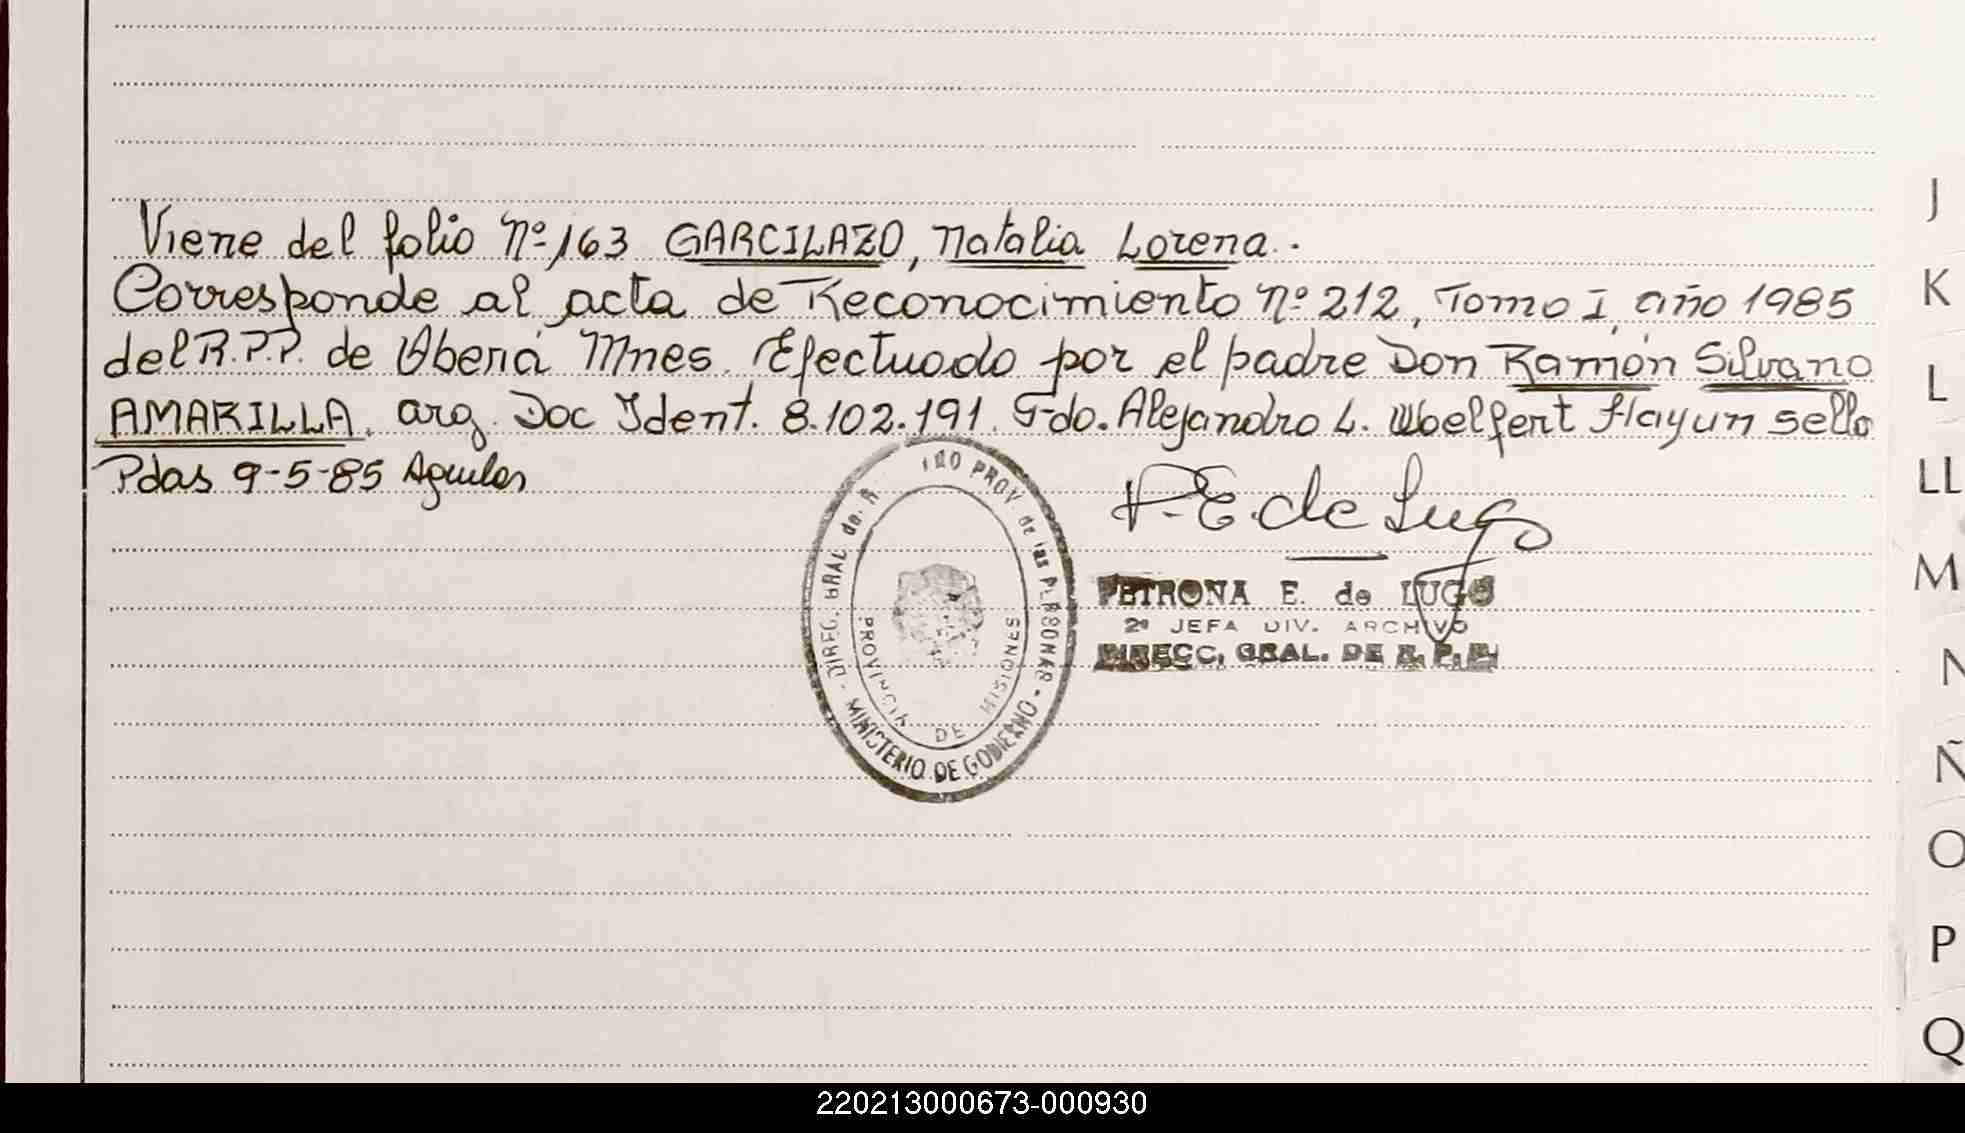 Viene del folio Nº 163 GARCILAZO, Natalia Lorena.
Corresponde al acta de Reconocimiento Nº 212, Tomo I, año 1985
del R.P.P. de Oberá Mnes. Efectuado por el padre Don Ramón Silvano
AMARILLA, arg. Doc Ident. 8.102.191. Fdo. Alejandro L. Woelfert Hay un sello
Pdas 9-5-85
P. E. de Lugo
PETRONA E. de LUGO
2ª JEFA DIV. ARCHIVO
DIRECC. GRAL. DE R. P. P.
DIREC. GRAL de R PROV. de las PERSONAS - MINISTERIO DE GOBIERNO -
PROVINCIA DE MISIONES
J
K
L
LL
M
N
Ñ
O
P
Q
220213000673-000930